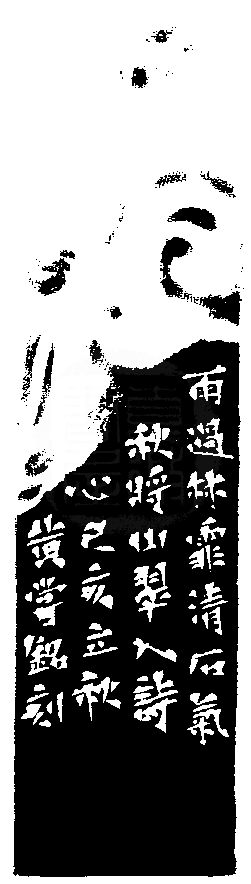 雨過林霏清石氣
秋將山翠入詩
心己亥立秋
黃嘗銘刻